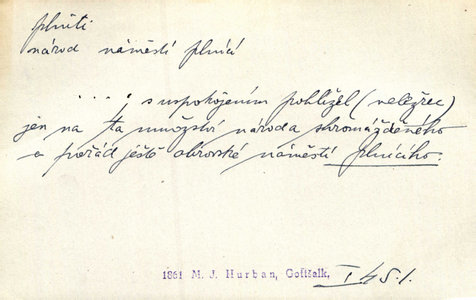 plniti
národ náměstí plnící
. . . . ; s uspokojením pohlížel (velezřec)
jen na ta množství národa shromážděného
a pořád ještě obrovské náměstí plnícího.
1861 M. J. Hurban, Gotšalk. I 45.1.